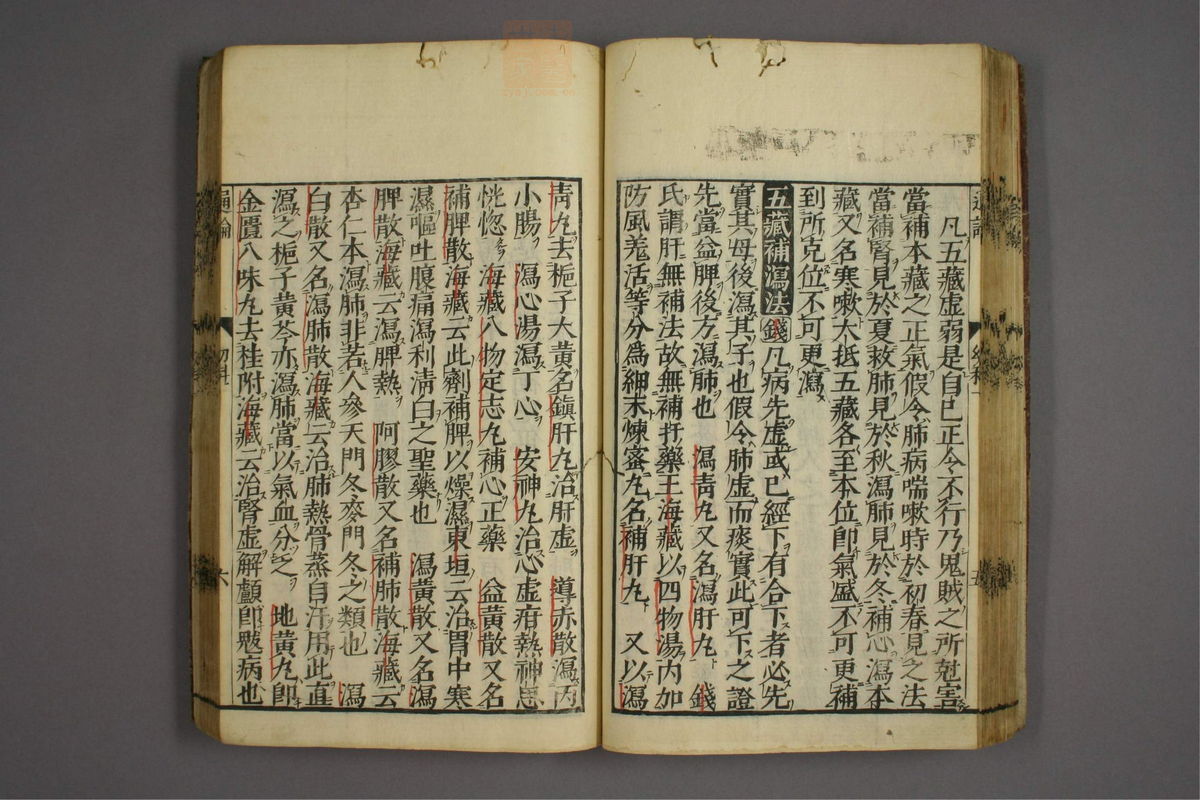 凡五藏虛弱是自己正令不行乃鬼賊之所尅害
當補本藏之正氣假令肺病喘嗽時於初春見之法
當補腎見於夏救肺見於秋瀉肺見於冬補心瀉本
藏又名寒嗽大抵五藏各至本位卽氣盛不可更補
到所克位不可更瀉
五藏補瀉法 錢 凡病先虛或已經下有合下者必先
實其母後瀉其子也假令肺虛而痰實此可下之證
先當益脾後方瀉肺也 瀉靑丸又名瀉肝丸 錢
氏謂肝無補法故無補肝藥王海藏以四物湯內加
防風羗活等分爲細末煉蜜丸名補肝丸 又以瀉
靑丸去梔子大黃名鎭肝丸治肝虛 導赤散瀉丙
小腸 瀉心湯瀉丁心 安神丸治心虛疳熱神思
恍惚 海藏八物定志丸補心正藥 益黃散又名
補脾散海藏云此劑補脾以燥濕東垣云治胃中寒
濕嘔吐腹痛瀉利淸白之聖藥也 瀉黃散又名瀉
脾散海藏云瀉脾熱 阿膠散又名補肺散海藏云
杏仁本瀉肺非若人參天門冬麥門冬之類也 瀉
白散又名瀉肺散海藏云治肺熱骨蒸自汗用此直
瀉之梔子黃芩亦瀉肺當以氣血分之 地黃丸卽
金匱八味丸去桂附海藏云治腎虛解顱卽魃病也
六